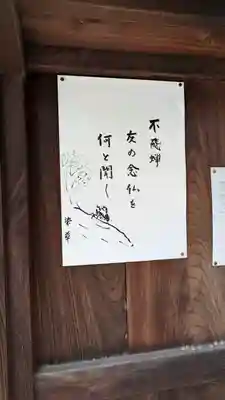 不飛蝉
友の念仏を
何と聞く